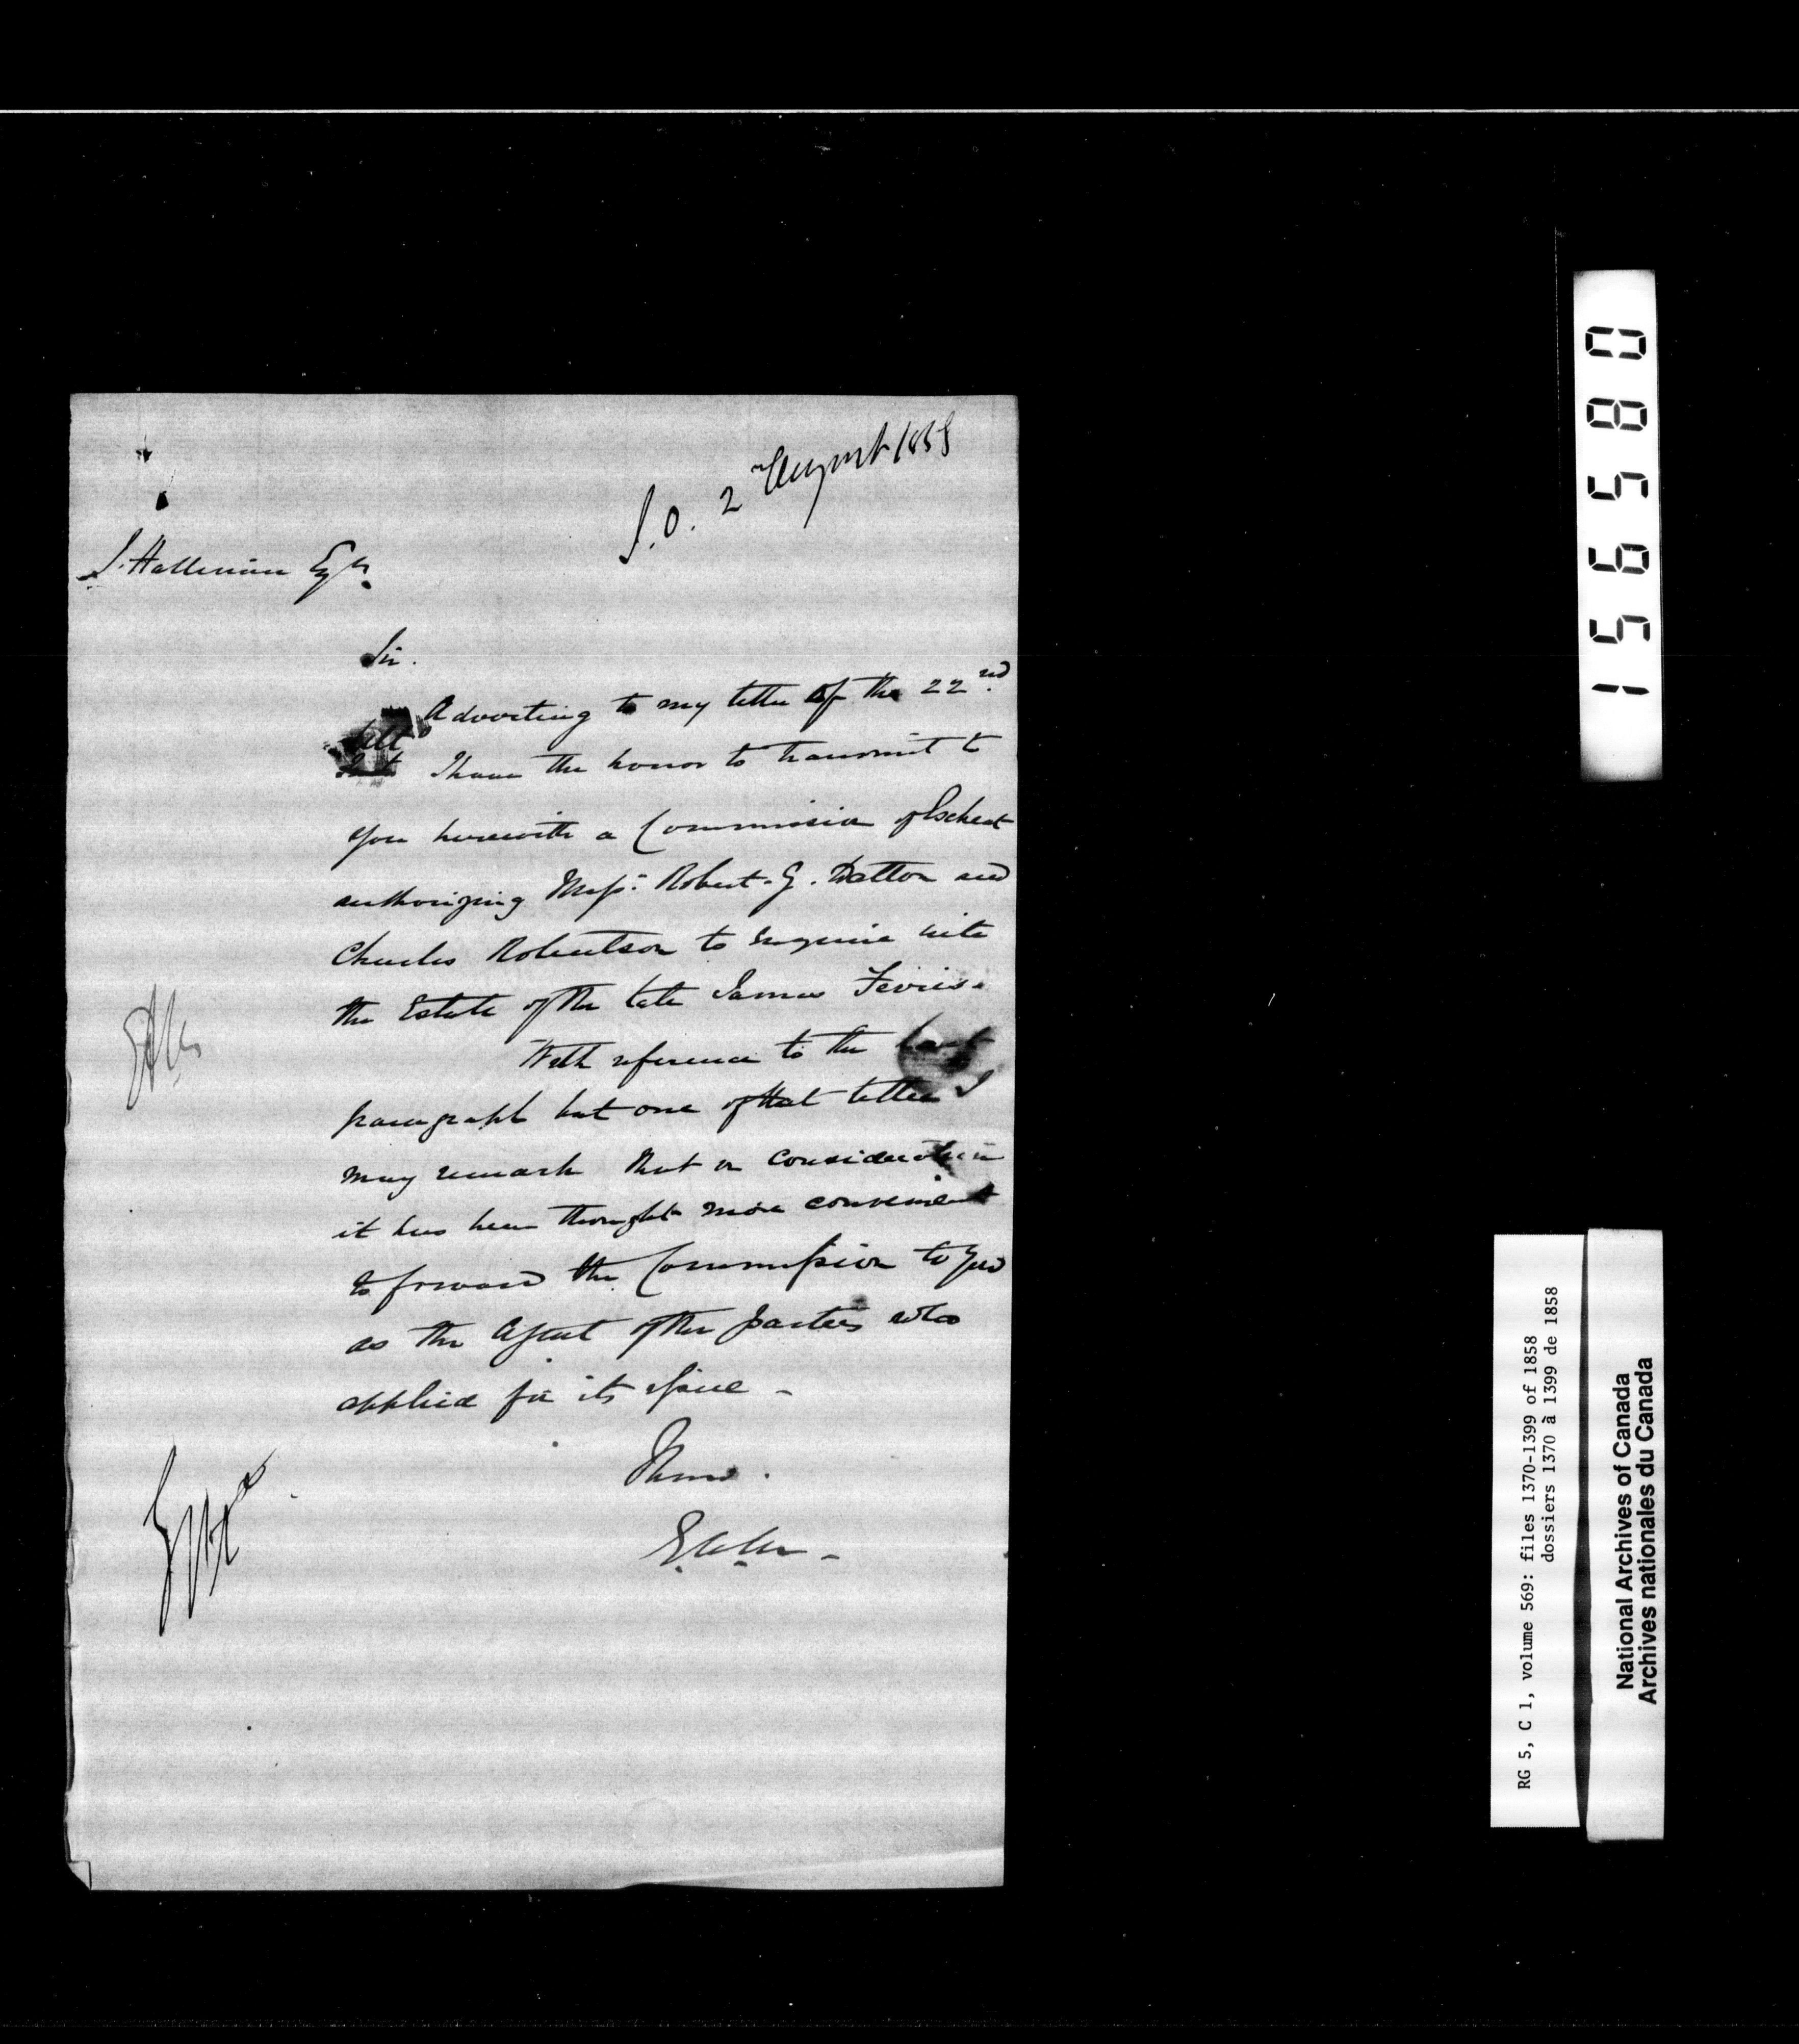 S.O. 2 August 1858
Esqr.
Sir.
Adverting to my letter of the 22nd
Ulto
I have the honor to transmit to
you herewith a Commission of Escheat
authorizing Messrs. Robert. G. Dalton and
Charles Robertson to enquire into
the Estate of the late James Ferris.
With reference to the last
paragraph but one of that letter I
may remark that on consideration
it has been thought more convenient
to forward the Commission to you
as the Agent of the parties who
applied for its issue -
I have.
156580
RG 5, C 1, volume 569: files 1370-1399 of 1858
dossiers 1370 à 1399 de 1858
National Archives of Canada
Archives nationales du Canada